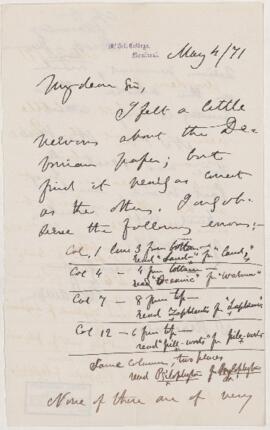 McGill College,
Montreal.
May 4/71
My dear Sir,
I felt a little
nervous about the De-
vonian paper; but
find it nearly as correct
as the others. I only ob-
serve the following errors:-
Col. 1 line 3 from bottom —
read "Land" for "Sand,"
Col 4 — 4 from bottom —
read "Oceanic" for
Col 7 — 8 from top —
read for
Col 12 — 6 from top —
read "pill-works" for
Same column, two places
read Psilophyton for
None of these are of very